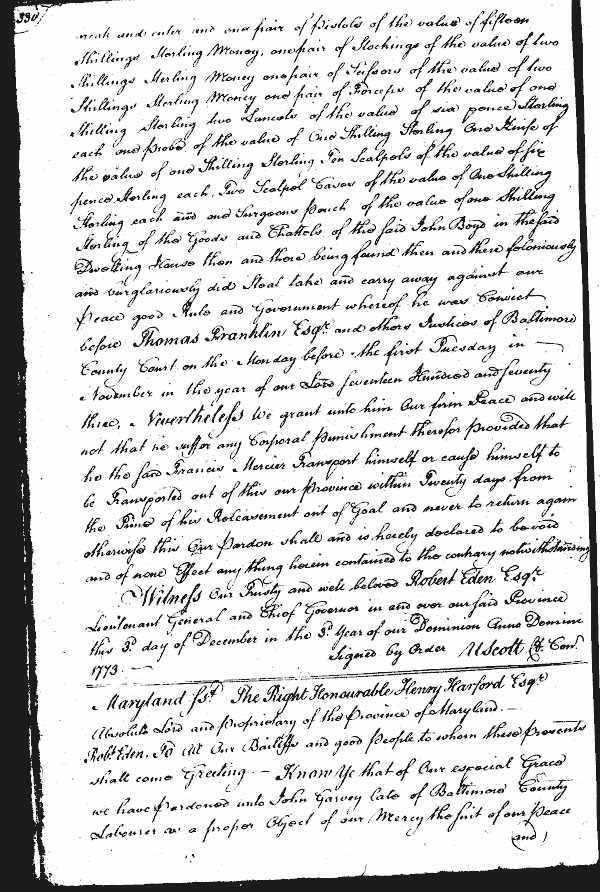 330
break and enter and one pair of Pistols of the value of fifteen
Shillings Sterling Money, one pair of Stockings of the value of two
Shillings Sterling Money one pair of Scissors of the value of two
Shillings Sterling Money one pair of Forceps of the value of one
Shilling Sterling two Lancets of the value of six pence Sterling
each one Probe of the value of One Shilling Sterling One Knife of
the value of one Shilling Sterling, Ten Scalpels of the value of six
pence Sterling each, Two Scalpel Cases of the value of One Shilling
Sterling each and one Surgeons Pouch of the value of one Shilling
Sterling of the Goods and Chattels of the said John Boyd in the said
Dwelling House then and there being found then and there feloniously
and burglariously did Steal take and carry away against our
Peace good Rule and Government whereof he was Convict
before Thomas Franklin Esqr. and others Justices of Baltimore
County Court on the Monday before the first Tuesday in
November in the year of our Lord Seventeen Hundred and Seventy
three, Nevertheless We grant unto him Our firm Peace and will
not that he suffer any Corporal Punishment therefor provided that
he the said Francis Mercier Transport himself or cause himself to
be Transported out of this our Province within Twenty days from
the Time of his Releasement out of Goal and never to return again
otherwise this Our Pardon shall and is hereby declared to be void
and of none Effect any thing herein contained to the contrary notwithstanding
Witness Our Trusty and well beloved Robert Eden Esqr.
Lieutenant General and Chief Governor in and over our said Province
this 3d. day of December in the 3d. Year of our Dominion Anno Domini
1773. — Signed by Order U Scott Con.
Maryland sst. The Right Honourable Henry Harford Esqr
Absolute Lord and Proprietary of the Province of Maryland. —
Robt. Eden. To All Our Bailiffs and good People to whom these Presents
shall come Greeting. — Know Ye that of Our especial Grace
we have Pardoned unto John Garvey late of Baltimore County
Labourer as a proper Object of our Mercy the Suit of our Peace
and